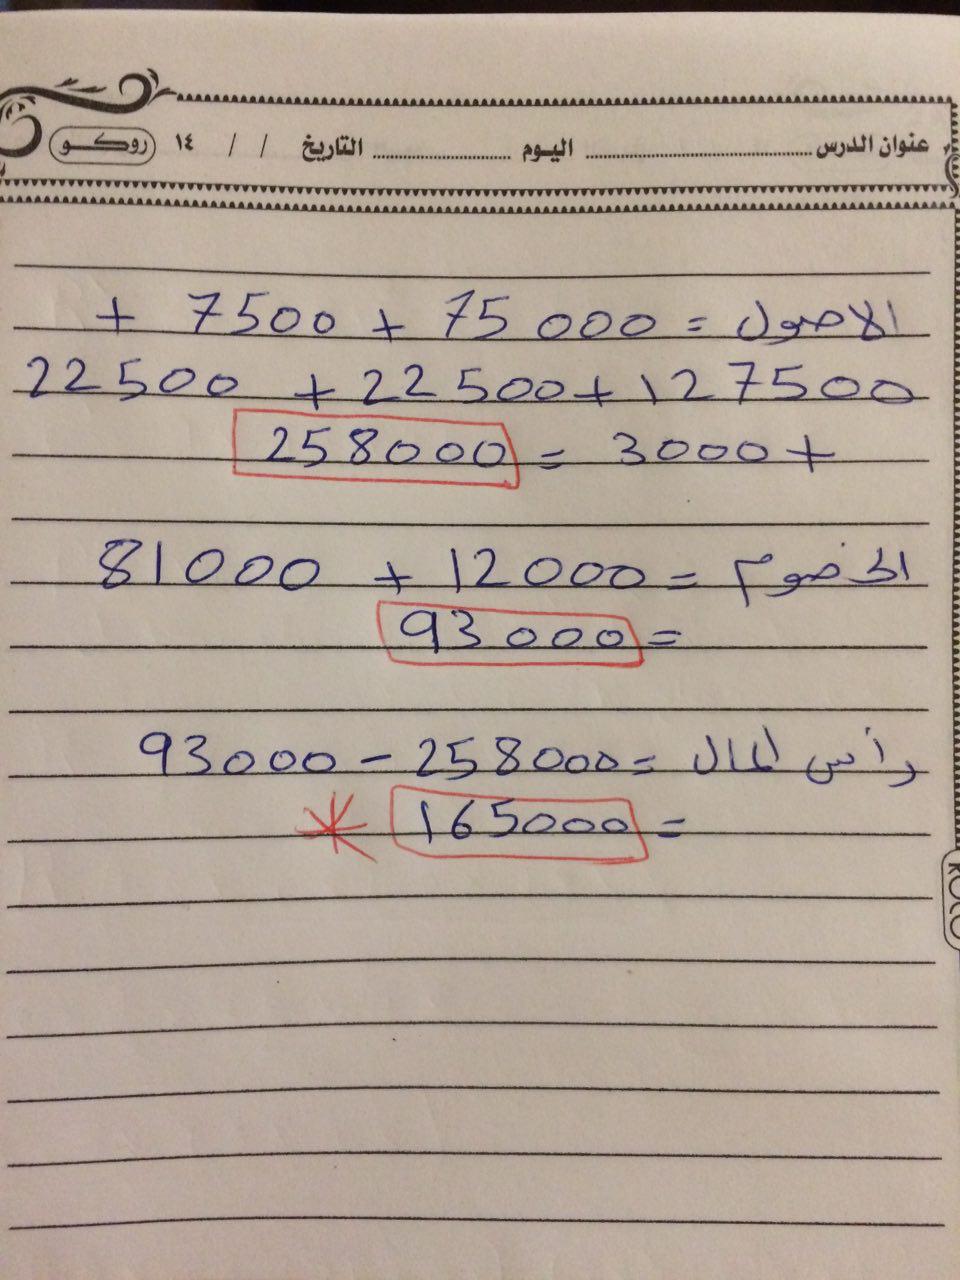 عنوان الدرس ........................ اليوم ................ التاريخ / / ١٤ روكو
الاصول = 75000 + 7500 +
22500 + 22500 + 127500
+ 3000 = 258000
الخصوم = 12000 + 81000
= 93000
رأس المال = 258000 - 93000
= 165000 *
ROCO